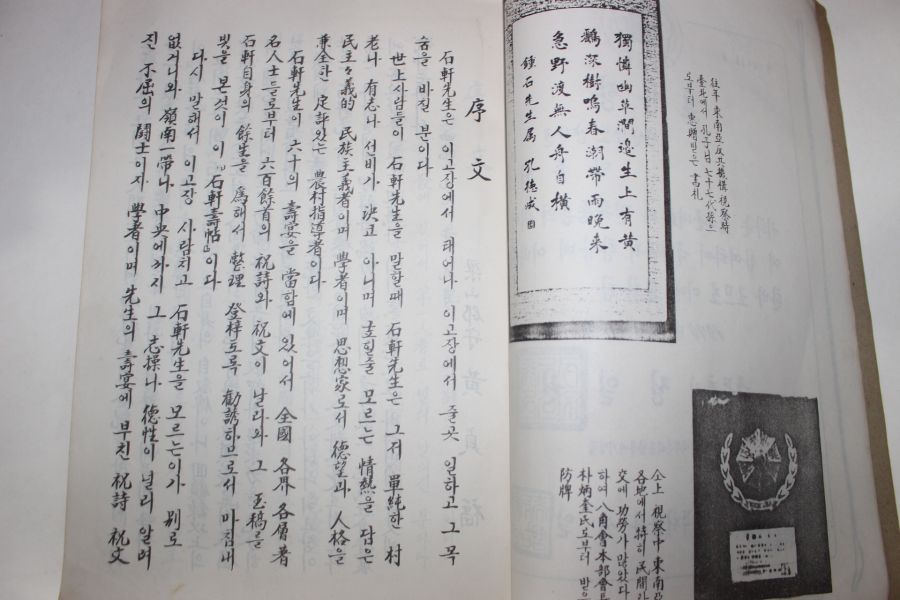 往年 東南亞反共機構 視察時
臺北에서 孔子님 七十七代孫으
로부터 惠題받은 書札
獨憐幽草澗邊生上有黃
鸝深樹鳴春潮帶雨晚來
急野波無人舟自橫
鍾石先生屬 孔德成
仝上 視察中 東南亞
各地에서 特히 民間外
交에 功勞가 많았다
하여 八角會本部會長
朴炳奎氏로부터 받은
防牌
序文
石軒先生은 이고장에서 태어나 이고장에서 줄곳 일하고 그 목
숨을 바칠 분이다
世上사람들이 石軒先生을 말할때 石軒先生은 그저 單純한 村
老나 有志나 선비가 決코 아니며 호흡을 모르는 情熱을 담은
民主主義的 民族主義者이며 學者이며 思想家로서 德望과 人格을
兼全한 定評있는 農村指導者이다
石軒先生이 六十의 壽宴을 當함에 있어서 全國 各界各層 著
名人士들로부터 六百餘首의 祝詩와 祝文이 날라와 그 玉稿를
石軒自身의 餘生을 爲해서 整理 登梓도록 勸誘하므로서 마침내
빛을 본것이 이 「石軒壽帖」이다
다시 말해서 이고장 사람치고 石軒先生을 모르는이가 別로
없거니와 嶺南一帶나 中央에까지 그 志操나 德性이 널리 알려
진 不屈의 鬪士이자 學者이며 先生의 壽宴에 부친 祝詩 祝文